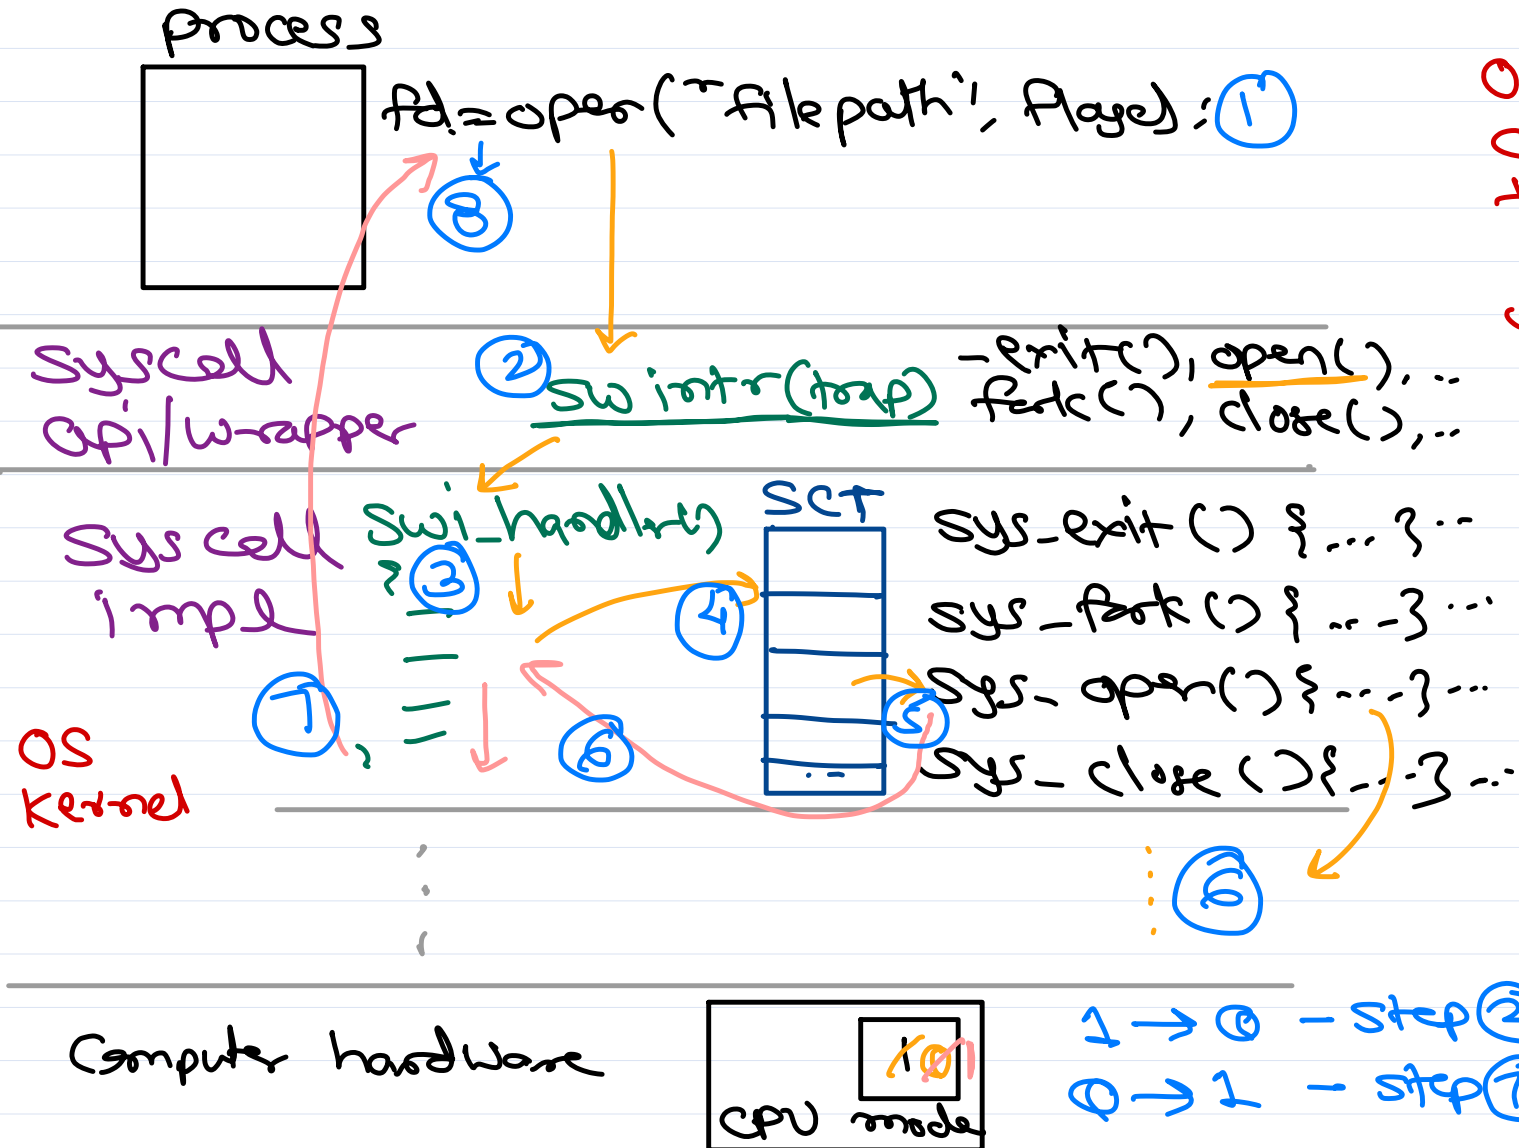 process
fd=open("filepath", flags); ①
⑧
syscall
api/wrapper
② sw intr(trap)
_exit(), open(), ...
fork(), close(), ...
syscall
impl
swi_handler()
{ ③
}
④
SCT
...
⑤
⑥
⑦
sys_exit() {....} ...
sys_fork() {....} ...
sys_open() {....} ...
sys_close() {....} ...
OS
Kernel
⑥
Computer hardware
1 0 1
CPU mode
1 → 0 - step ②
0 → 1 - step ⑦